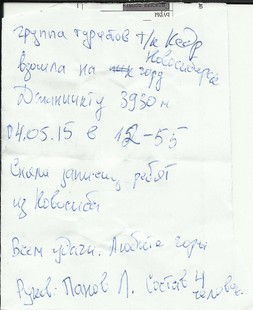 группа туристов т/к Кедр
Новосибирск
взошла на гору
Джаничкту 3930 м
04.05.15 в 12-55
Сняли записку ребят
из Новосиба
Всем удачи. Любите горы
Руков. Панов Л. Состав 4
человек.